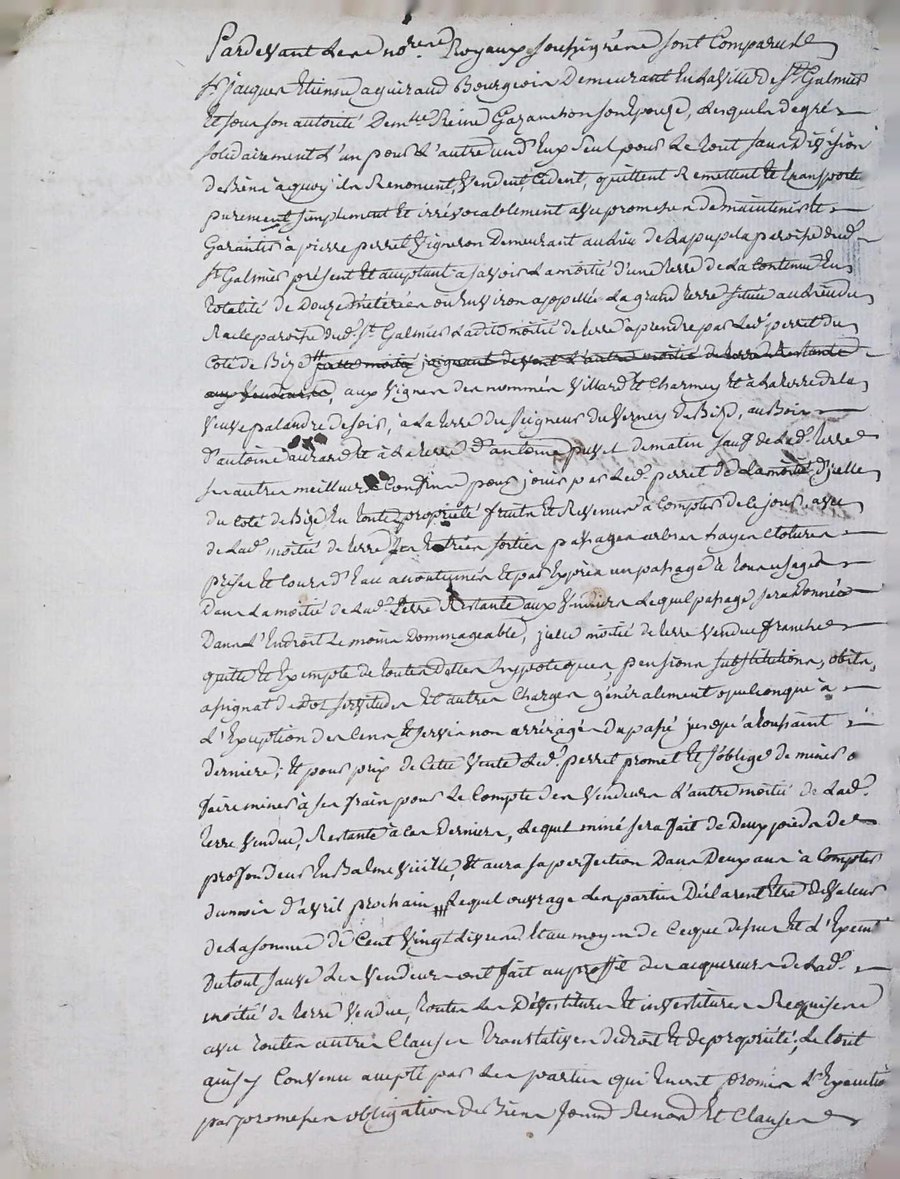 Pardevant les nores Royaux soussignés sont Comparus
sr jacques Etienne aguiraud Bourgeois Demeurant En la ville de st Galmier
Et sous son autorité Demlle Reine Gazanchon son Epouse, lesquels de gré
solidairement l'un pour l'autre un d'Eux seul pour le tout sans Division
de Biens à quoy ils Renoncent, Vendent Cedent, quittent Remettent Et transportent
purement simplement Et irrévocablement avec promesse de maintenir Et
Garantir à pierre perret Vigneron Demeurant au lieu de la paroisse dud.
st Galmier présent Et acceptant à savoir la moitié d'une terre de la Contenue En
totalité de Douze métérées ou Environ appellée La grand terre située au lieu du
paroisse dud. st Galmier Ladite moitié de terre à prendre par Led. perret du
Coté de Bize joignant de vent l'autre moitié de terre Restante
aux Vendeurs, aux Vignes des nommés Villard Et Charmey Et à la terre de la
Veuve palandre de soir, à la terre du seigneur du Verney de Bize, au Bois
d'antoine Et à la terre d'antoine de matin sauf de Lad. terre
ses autres meilleurs Confins pour jouir par Led. perret de la moitié d'jcelle
du Coté de Bize En toute propriété fruits Et Revenus à Compter de ce jour, avec
de Lad. moitié de terre ses Entrées sorties passages arbres hayes Clotures
prises Et Cours d'Eau accoutumés Et par Exprès un passage à tous usages
Dans La moitié de Lad. terre Restante aux Vendeurs Lequel passage sera Donné
Dans L'Endroit Le moins Dommageable, jcelle moitié de terre Vendue franche
quitte Et Exempte de toutes dettes hypoteques, pensions substitutions, obits,
assignat de dot servitudes Et autres Charges généralement quelconque à
L'Exception des Cens Et servis non arréragés du passé jusqu'à toussaint
derniere; Et pour prix de Cette Vente Led. perret promet Et s'oblige de miner o
faire miner à ses frais pour Le Compte des Vendeurs L'autre moitié de Lad.
terre Vendue, Restante à Ces Derniers, Lequel miné sera fait de Deux pieds de
profondeur En Balme Vieille, Et aura sa perfection Dans Deux ans à Compter
du mois d'avril prochain, Lequel ouvrage Les parties Déclarent Etre de Valeur
de La somme de Cent Vingt livres Et au moyen de Ce que dessus Et d'
du tout sauve Les Vendeurs ont fait au proffit de acquereur de Lad.
moitié de terre Vendue, toutes Les Dévestitures Et investitures Requises
avec toutes autres Clauses translatives de droit Et de propriété; Le tout
ainsy Convenu accepté par Les parties qui En ont promis L'Exécution
par promesses obligation de Biens Renond Et Clauses